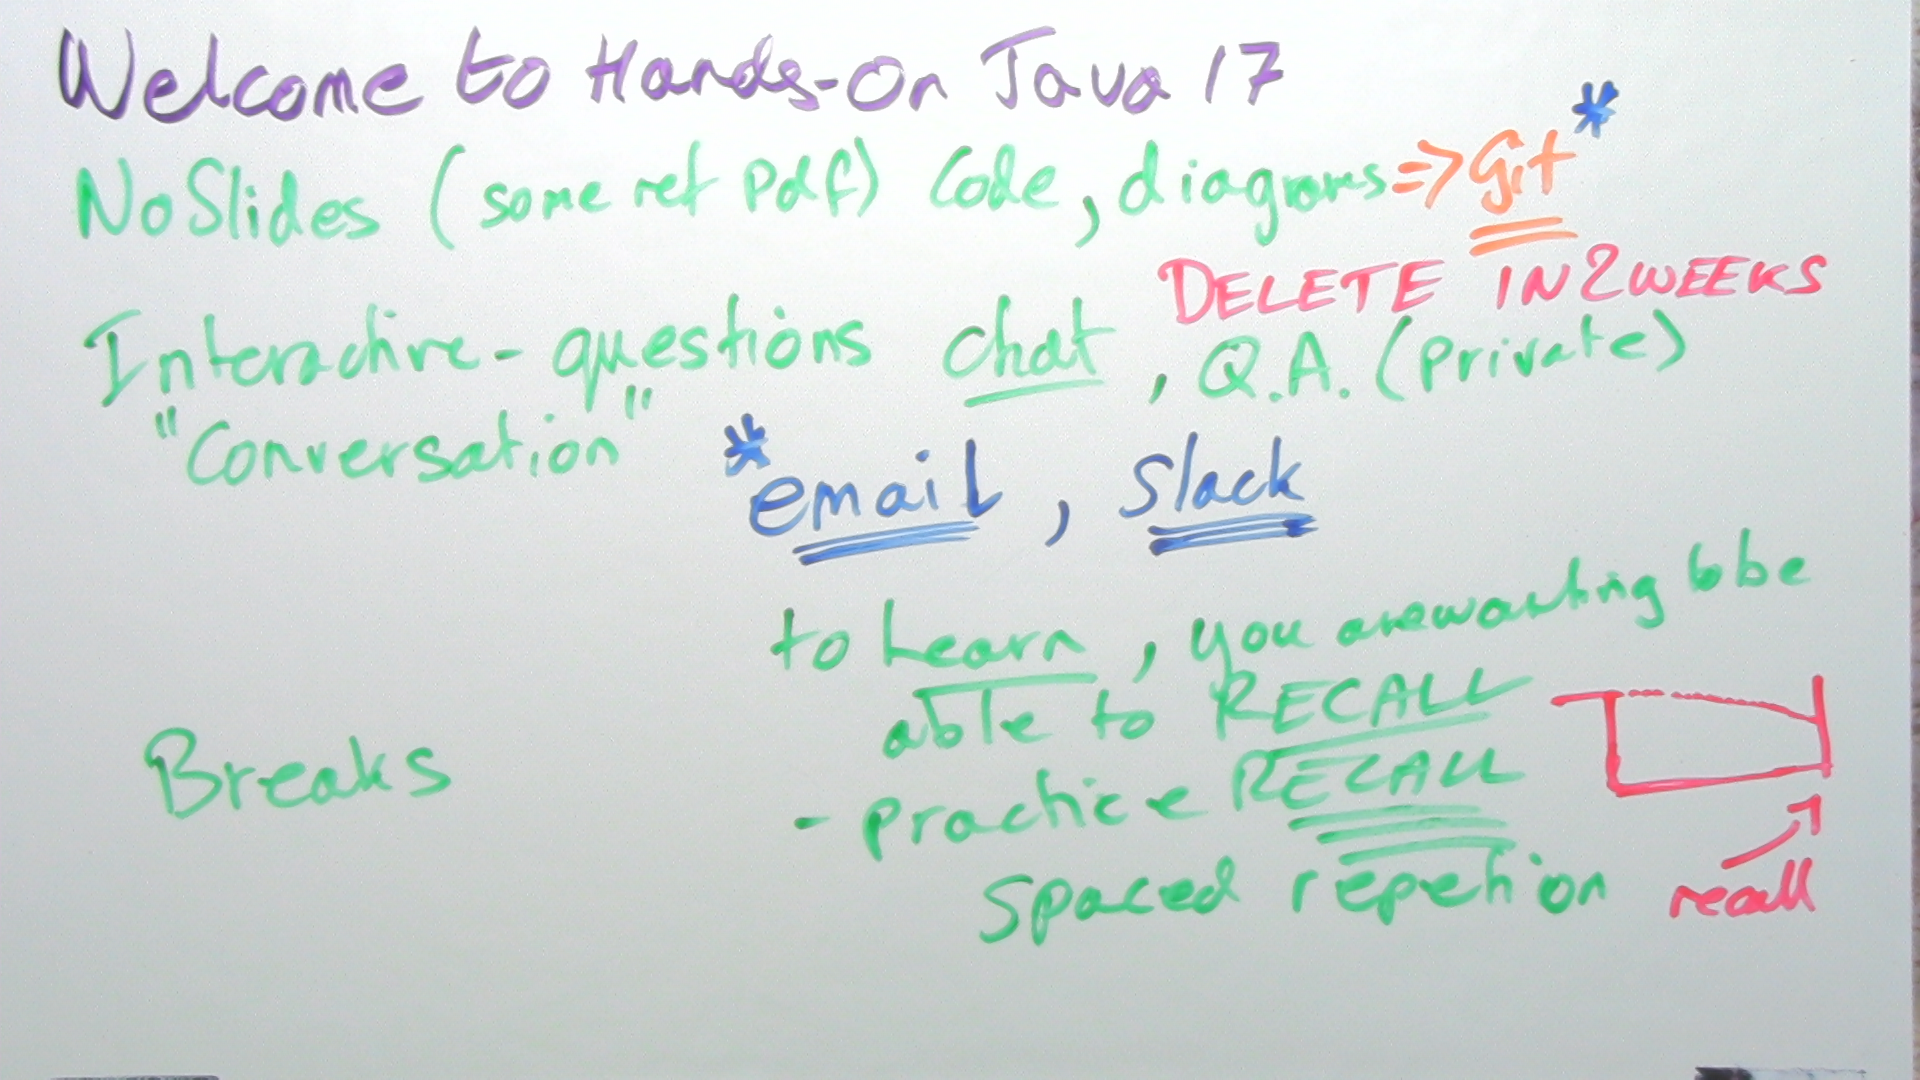 Welcome to Hands-On Java 17
No Slides (some ref pdf) Code, diagrams => Git *
DELETE IN 2 WEEKS
Interactive - questions chat, Q.A. (private)
"Conversation"
* email, Slack
to Learn, you are wanting to be
able to RECALL
Breaks
- practice RECALL
spaced repetion
recall